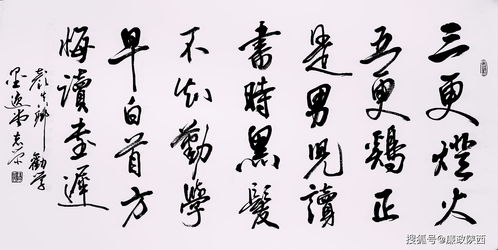 三更燈火
五更鷄正
是男兒讀
書時黑髮
不知勤學
早白首方
悔讀書遲
顔真卿 勸学
搜狐号@廉政陕西